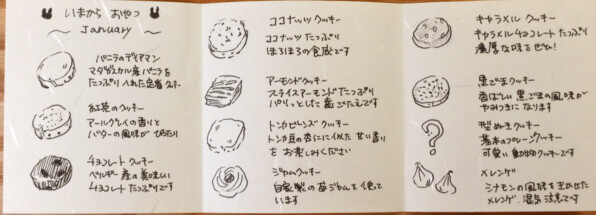 いまから おやつ
~ January ~
バニラのディアマン
マダガスカル産バニラを
たっぷり入れた定番クッキー
紅茶のクッキー
アールグレイの香りと
バターの風味が ぴったり
チョコレートクッキー
ベルギー産の美味しい
チョコレートたっぷりです
ココナッツクッキー
ココナッツたっぷり
ほろほろの食感です
アーモンドクッキー
スライスアーモンドたっぷり
パリッとして歯ごたえです
トンカビーンズクッキー
トンカ豆の杏仁に似た甘い香り
をお楽しみください
ジャムクッキー
自家製の苺ジャムを使って
います
キャラメルクッキー
キャラメルチョコレートたっぷり
濃厚な味をぜひ!
黒ごまクッキー
香ばしい黒ごまの風味が
やみつきになります
?
型ぬきクッキー
基本のプレーンクッキー
可愛い動物クッキーです
メレンゲ
シナモンの風味を忍ばせた
メレンゲ、湿気注意です